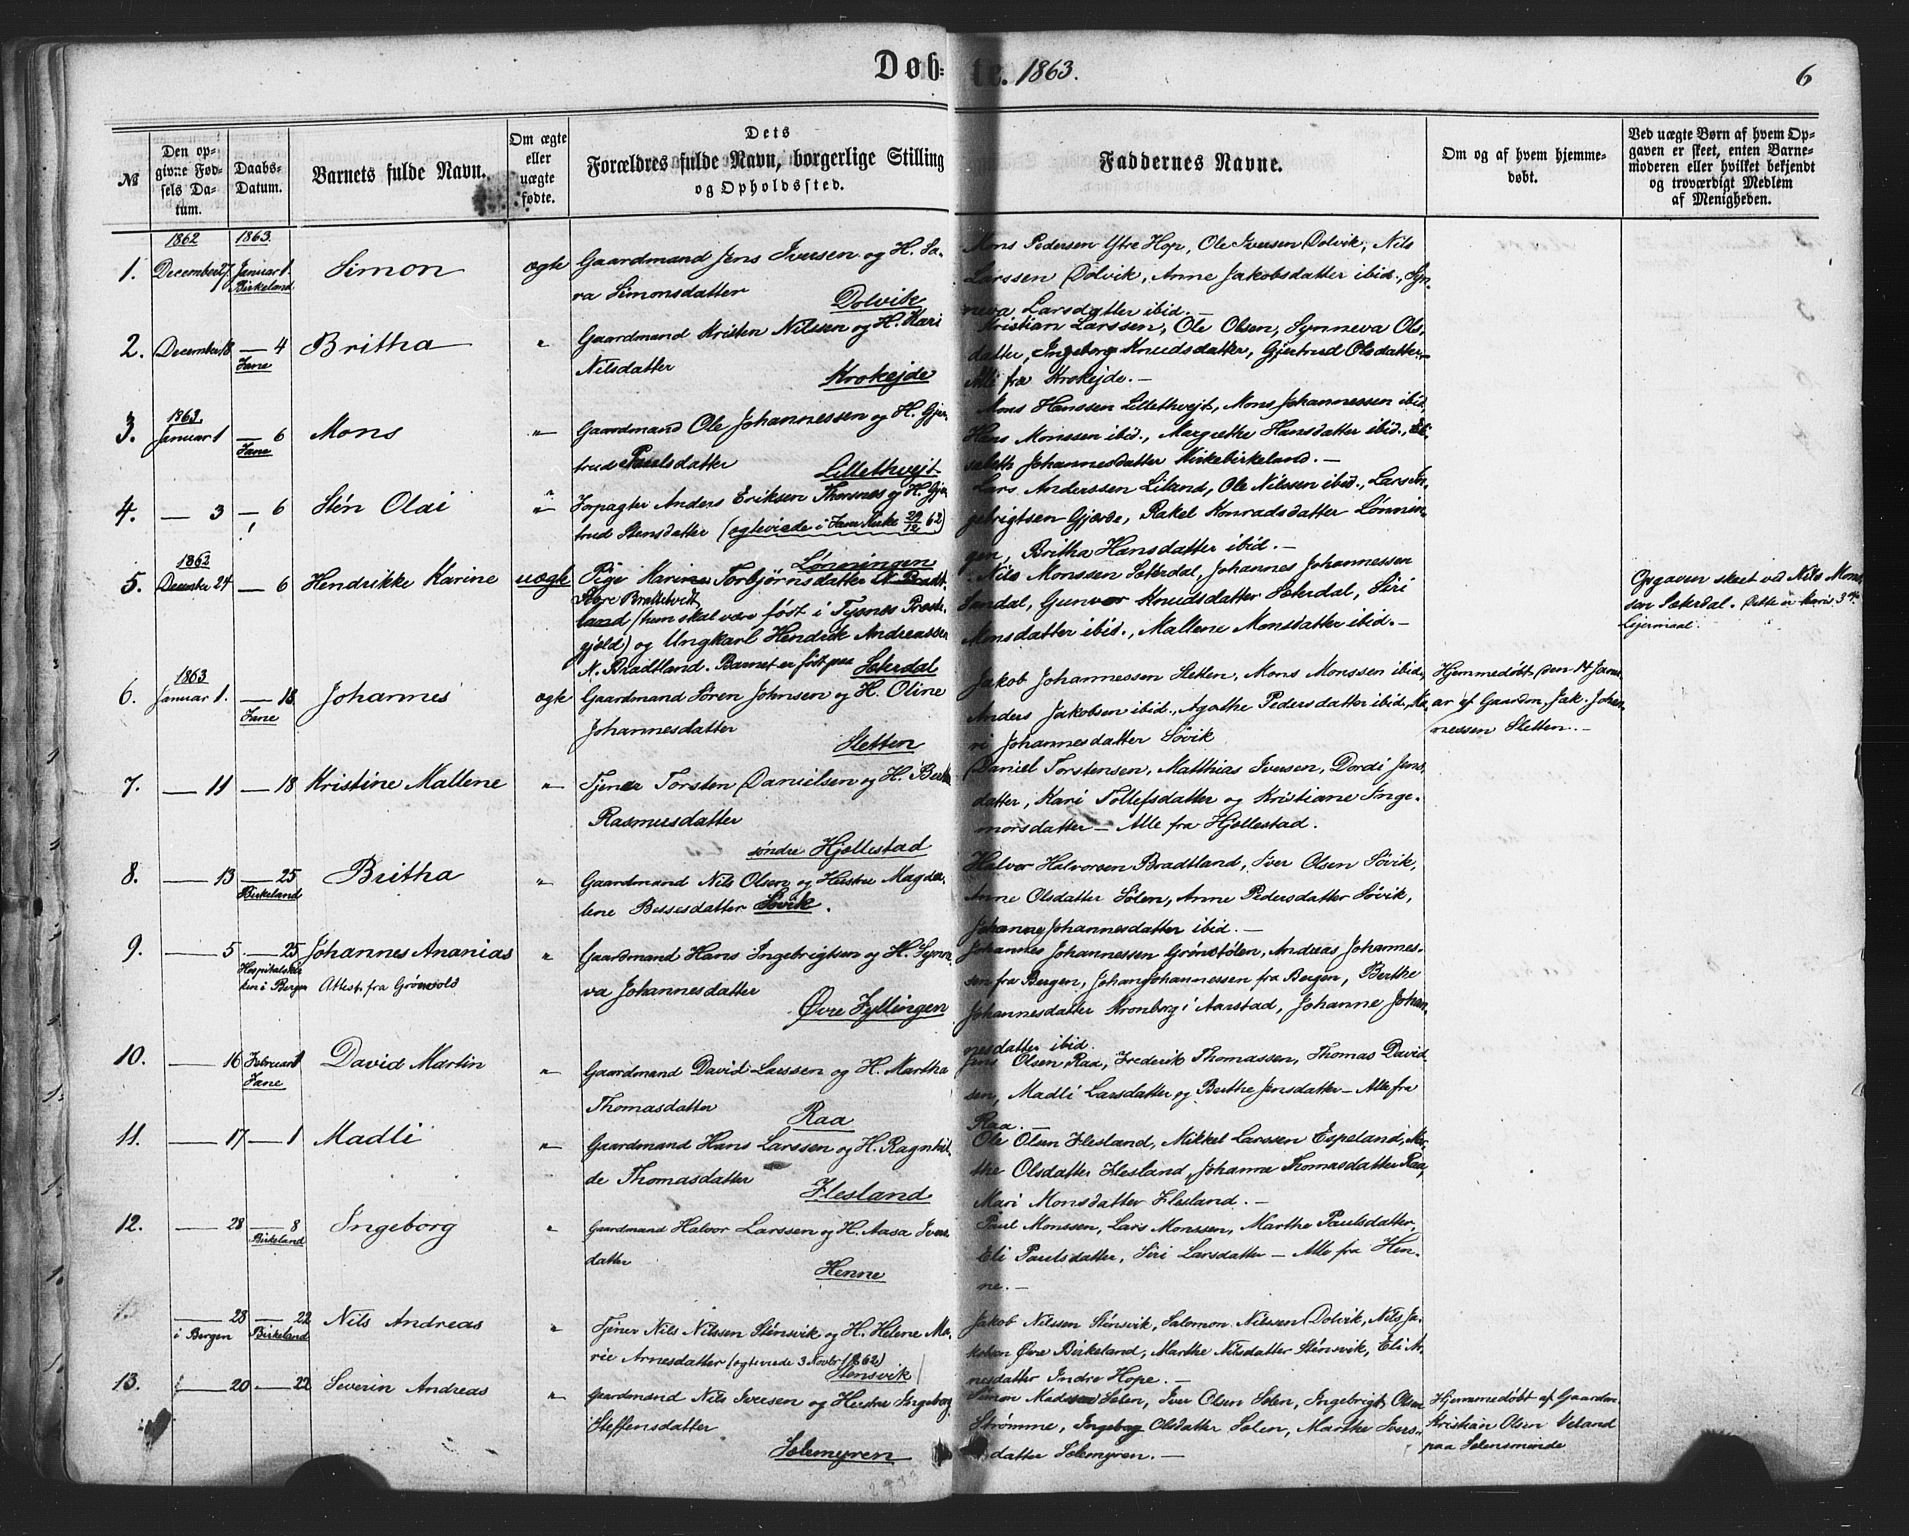 Døb-te. 1863. 6
№
Den op-
givne Fød-
sels Da-
tum.
Daabs-
Datum.
Barnets fulde Navn.
Om ægte
eller
uægte
fødte.
Dets
Forældres fulde Navn, borgerlige Stilling
og Opholdssted.
Faddernes Navne.
Om og af hvem hjemme-
døbt.
Ved uægte Børn af hvem Op-
gaven er skeet, enten Barne-
moderen eller hvilket bekjendt
og troværdigt Medlem
af Menigheden.
1862 1863.
1. December 27 Januar 1. Birkeland Simon ægte
Gaardmand Jens Iversen og H. Sa-
ra Simonsdatter
Dolvik
Mons Pedersen Ytre Hop, Ole Iversen Dolvik, Nils
Larssen Dolvik, Anne Jakobsdatter ibid., Syn-
neva Larsdatter ibid. —
2. December 18 — 4 Fane Britha "
Gaardmand Kristen Nilssen og H. Kari
Nilsdatter
Krokejde
Kristian Larssen, Ole Olsen, Synneva Ols-
datter, Ingeborg Knudsdatter, Gjertrud Olsdatter —
Alle fra Krokejde. —
1863.
3. Januar 1 — 6 Fane Mons "
Gaardmand Ole Johannessen og H. Gjer-
trud Paulsdatter
Lillethvejt
Mons Hanssen Lillethvejt, Mons Johannessen ibid.
Hans Monssen ibid., Margrethe Hansdatter ibid., Eli-
sabeth Johannesdatter Kirkebirkeland. —
4. — 3 — 6 Stén Olai "
Forpagter Anders Eriksen Thorsnes og H. Gjer-
trud Stensdatter (ægteviede i Fane Kirke 29/12 62)
Lønningen
Lars Anderssen Liland, Ole Nilssen ibid., Lars In-
gebrigtsen Gjerde, Rakel Konradsdatter Lønnin-
gen, Britha Hansdatter ibid. —
1862
5. December 24 — 6 Hendrikke Karine uægte
Pige Karine Torbjørnsdatter N. Bradt-
land (hun skal være født i Tysnes Præste-
gjeld) og Ungkarl Hendrik Andreassen
N. Bradtland. Barnet er født paa Sælerdal
Nils Monssen Sælerdal, Johannes Johannessen
Sandal, Gunvor Knudsdatter Sælerdal, Siri
Monsdatter ibid., Mallene Monsdatter ibid. —
Opgaven skeet ved Nils Mons-
sen Sælerdal. Dette er Karis 3die
Lejermaal
1863
6. Januar 1. — 18 Fane Johannes ægte
Gaardmand Søren Johnsen og H. Oline
Johannesdatter
Sletten
Jakob Johannessen Sletten, Mons Monssen ibid.,
Anders Jakobsen ibid., Agathe Pedersdatter ibid., Ka-
ri Johannesdatter Søvik
Hjemmedøbt den 14 Janu-
ar af Gaardm. Jak. Johan-
nessen Sletten. —
7. — 11 — 18 Kristine Mallene "
Tjener Torsten Danielsen og H. Berthe
Rasmusdatter
søndre Hjellestad
Daniel Torstensen, Matthias Iversen, Dordi Jens-
datter, Kari Tollefsdatter og Kristiane Inge-
morsdatter — Alle fra Hjellestad.
8. — 13 — 25 Birkeland Britha "
Gaardmand Nils Olsen og Hustru Magda-
lene Bessesdatter Søvik.
Halvor Halvorsen Bradtland, Iver Olsen Søvik,
Anne Olsdatter Sølen, Anne Pedersdatter Søvik,
Johanne Johannesdatter ibid. —
9. — 5 — 25 Hospitalskir-
ken i Bergen Johannes Ananias "
Attest. fra Grønvold
Gaardmand Hans Ingebrigtsen og H. Synne-
va Johannesdatter
Øvre Fyllingen
Johannes Johannessen Grønstølen, Andreas Johannes-
sen fra Bergen, Johan Johannessen fra Bergen, Berthe
Johannesdatter Kronborg i Aarstad, Johanne Johan-
nesdatter ibid.
10. — 16 Februar 1 Fane David Martin "
Gaardmand David Larssen og H. Martha
Thomasdatter
Raa
Jens Olsen Raa, Frederik Thomassen, Thomas David-
sen, Madli Larsdatter og Berthe Jensdatter — Alle fra
Raa. —
11. — 17 — 1 Madli "
Gaardmand Hans Larssen og H. Ragnhil-
de Thomasdatter
Flesland
Ole Olsen Flesland, Mikkel Larssen Espeland, Mar-
the Olsdatter Flesland, Johanna Thomasdatter Raa,
Mari Monsdatter Flesland. —
12. — 28 — 8 Birkeland Ingeborg "
Gaardmand Halvor Larssen og H. Aasa Ivers-
datter
Henne
Paul Monssen, Lars Monssen, Marthe Paulsdatter,
Eli Paulsdatter, Siri Larsdatter — Alle fra Hen-
ne. —
13 — 28 i Bergen — 22 Birkeland Nils Andreas "
Tjener Nils Nilssen Sténsvik og H. Helene Ma-
rie Arnesdatter (ægteviede 3 Novbr 1862)
Stensvik
Jakob Nilssen Sténsvik, Salomon Nilssen Dolvik, Nils Ja-
kobsen Øvre Birkeland, Marthe Nilsdatter Sténsvik, Eli Ar-
nesdatter Indre Hope. —
13. — 20 — 22 Severin Andreas "
Gaardmand Nils Iversen og Hustru Ingeborg
Steffensdatter
Sølemyren
Simon Madssen Sølen, Iver Olsen Sølen, Ingebrigt Olsen
Strømme, Ingeborg Olsdatter Sølen, Marthe Ivers-
datter Sølemyren. —
Hjemmedøbt af Gaardm.
Kristian Olsen Veland
paa Sølensminde